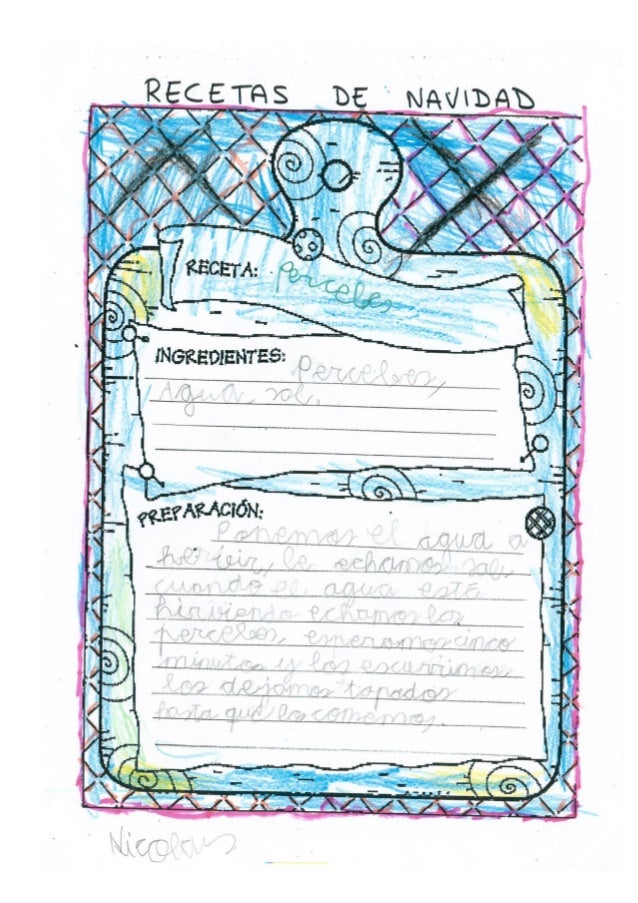 RECETAS DE NAVIDAD
RECETA: Percebes
INGREDIENTES: Percebes,
Agua, sal.
PREPARACIÓN:
Ponemos el agua a
hervir, le echamos sal,
cuando el agua está
hirviendo echamos los
percebes, esperamos cinco
minutos y los escurrimos
los dejamos tapados
hasta que los comemos.